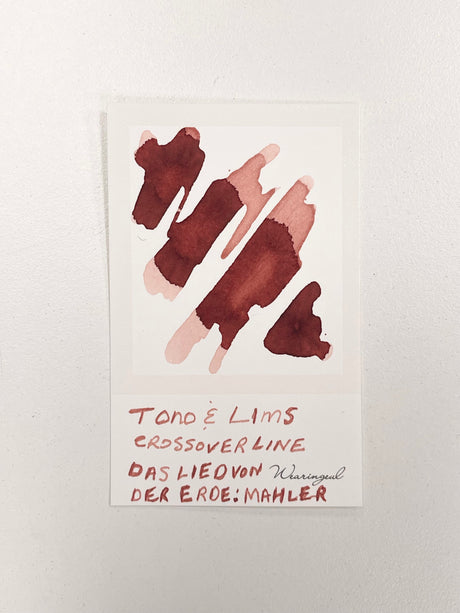 TONO & LIMS
CROSSOVER LINE
DAS LIED VON Wearingeul
DER ERDE: MAHLER